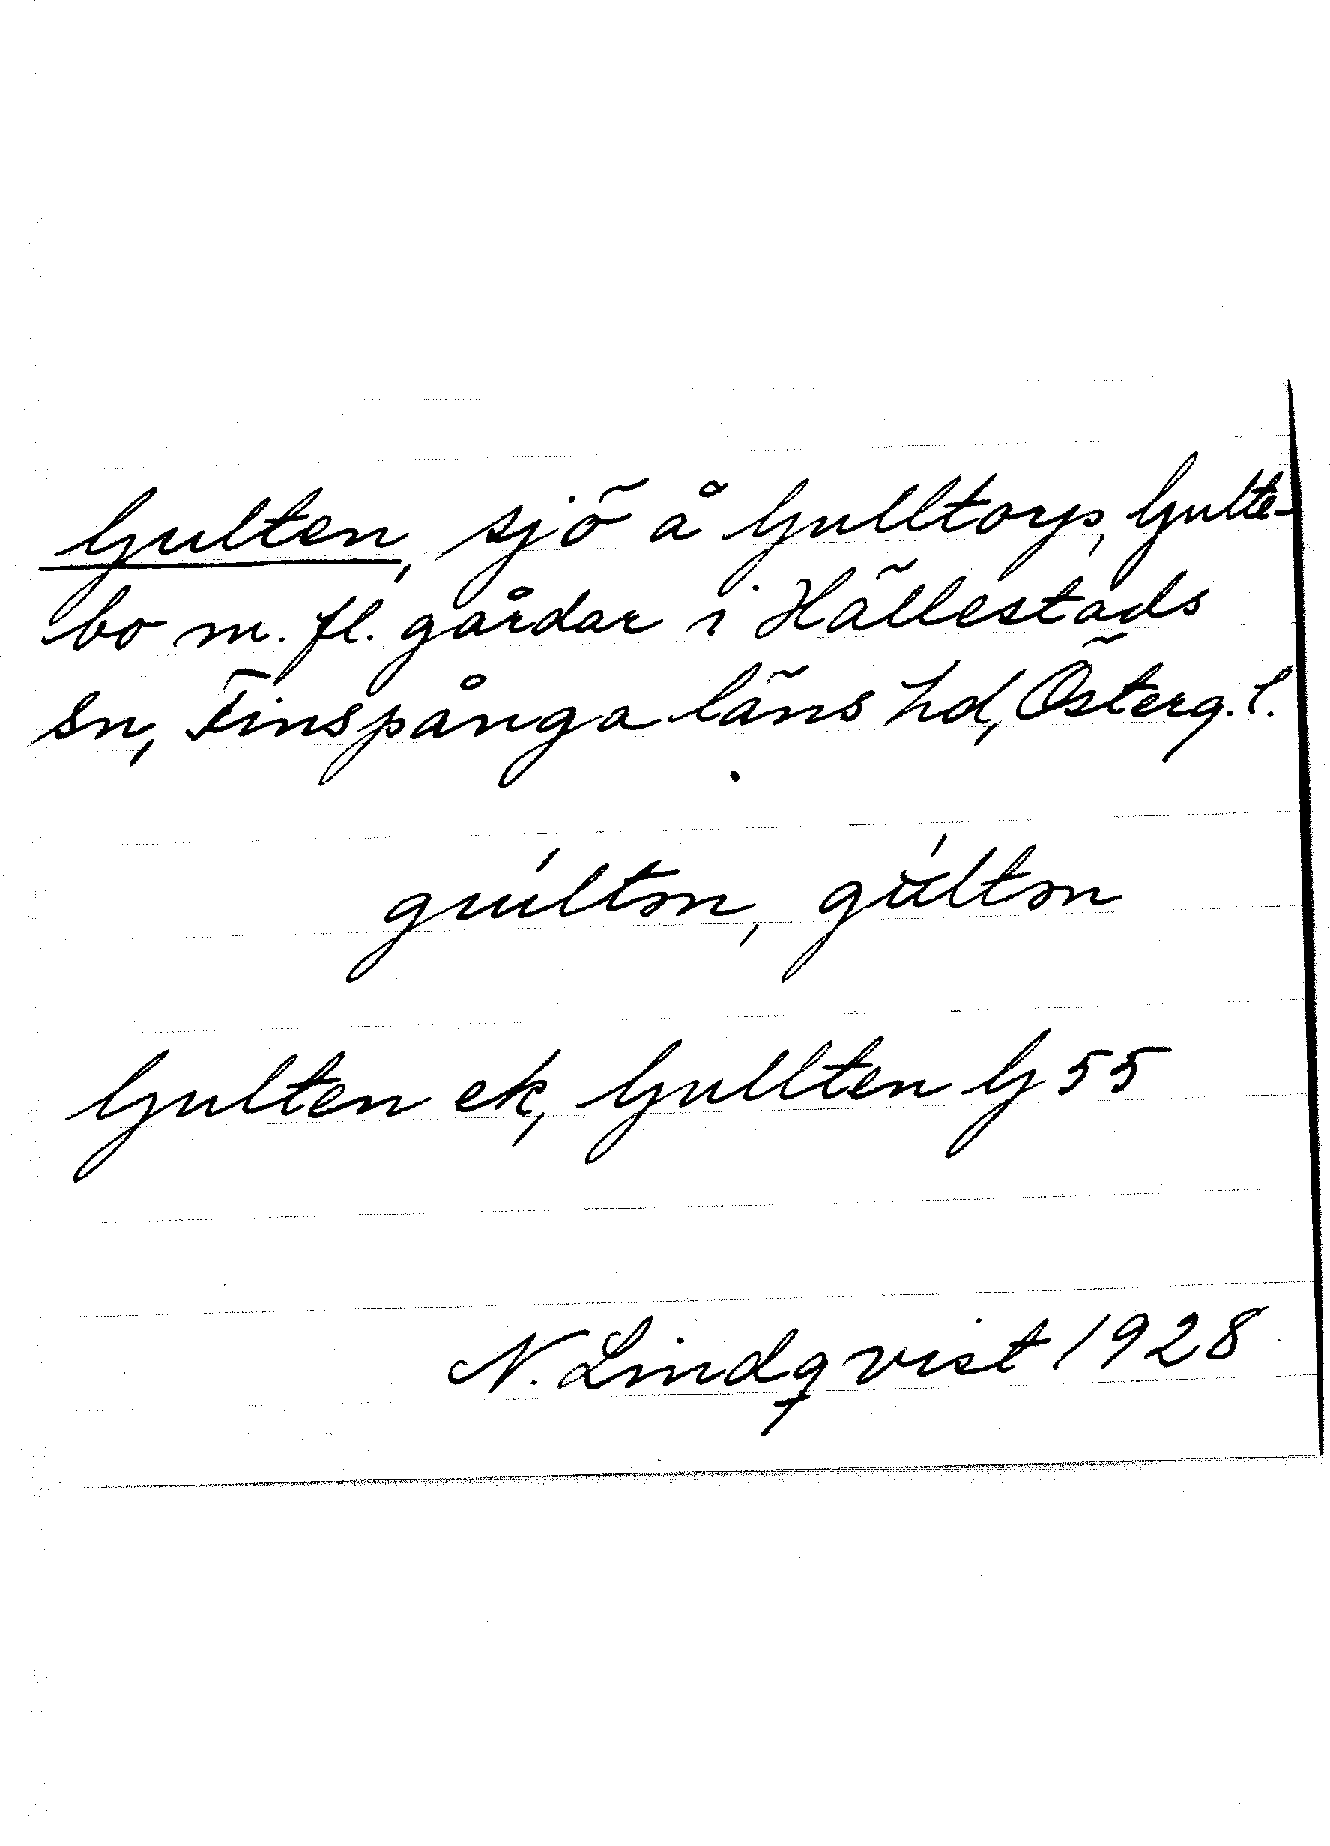 Gulten, sjö å Gulltorp, Gulte-
bo m. fl. gårdar i Hällestads
sn, Finspånga läns hd, Österg. l.
Gulten ek, Gullten G 55
N. Lindqvist 1928